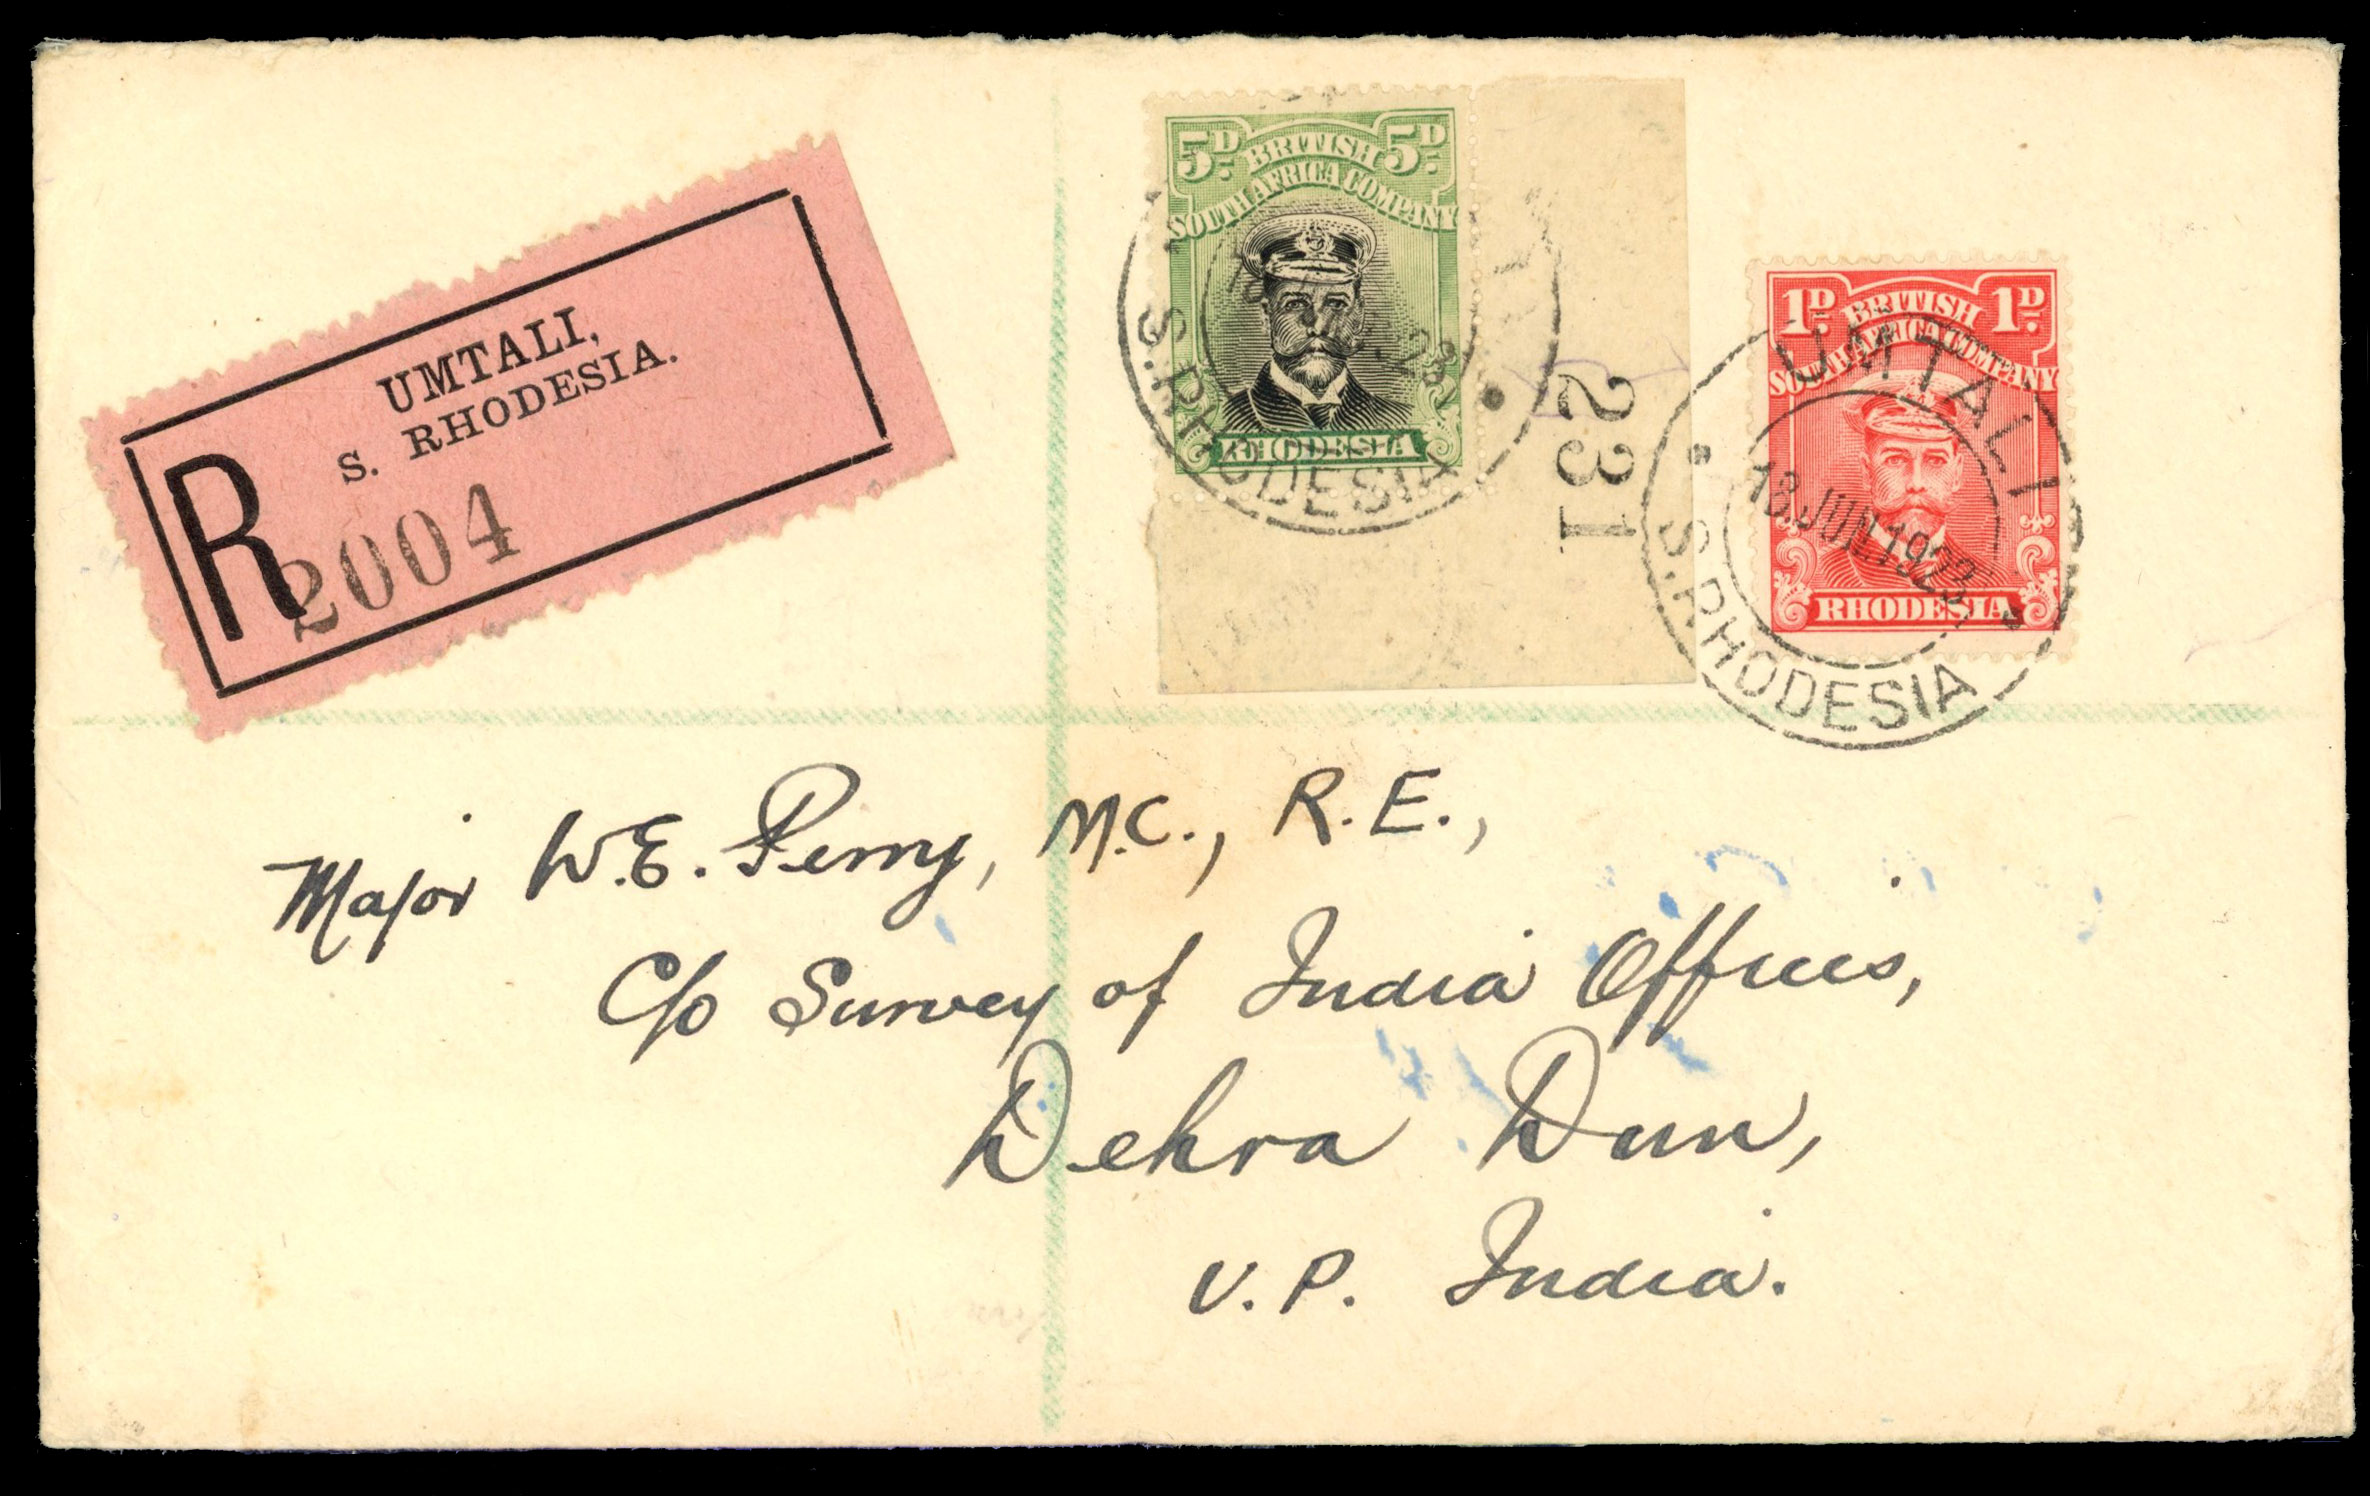 UMTALI,
S. RHODESIA.
R
2004
5D. BRITISH 5D.
SOUTH AFRICA COMPANY
RHODESIA
S. RHODESIA
231
1D. BRITISH 1D.
SOUTH AFRICA COMPANY
RHODESIA
UMTALI
18 JUN 1923
S. RHODESIA
Major W.E. Perry, M.C., R.E.,
C/o Survey of India Offices,
Dehra Dun,
U.P. India.